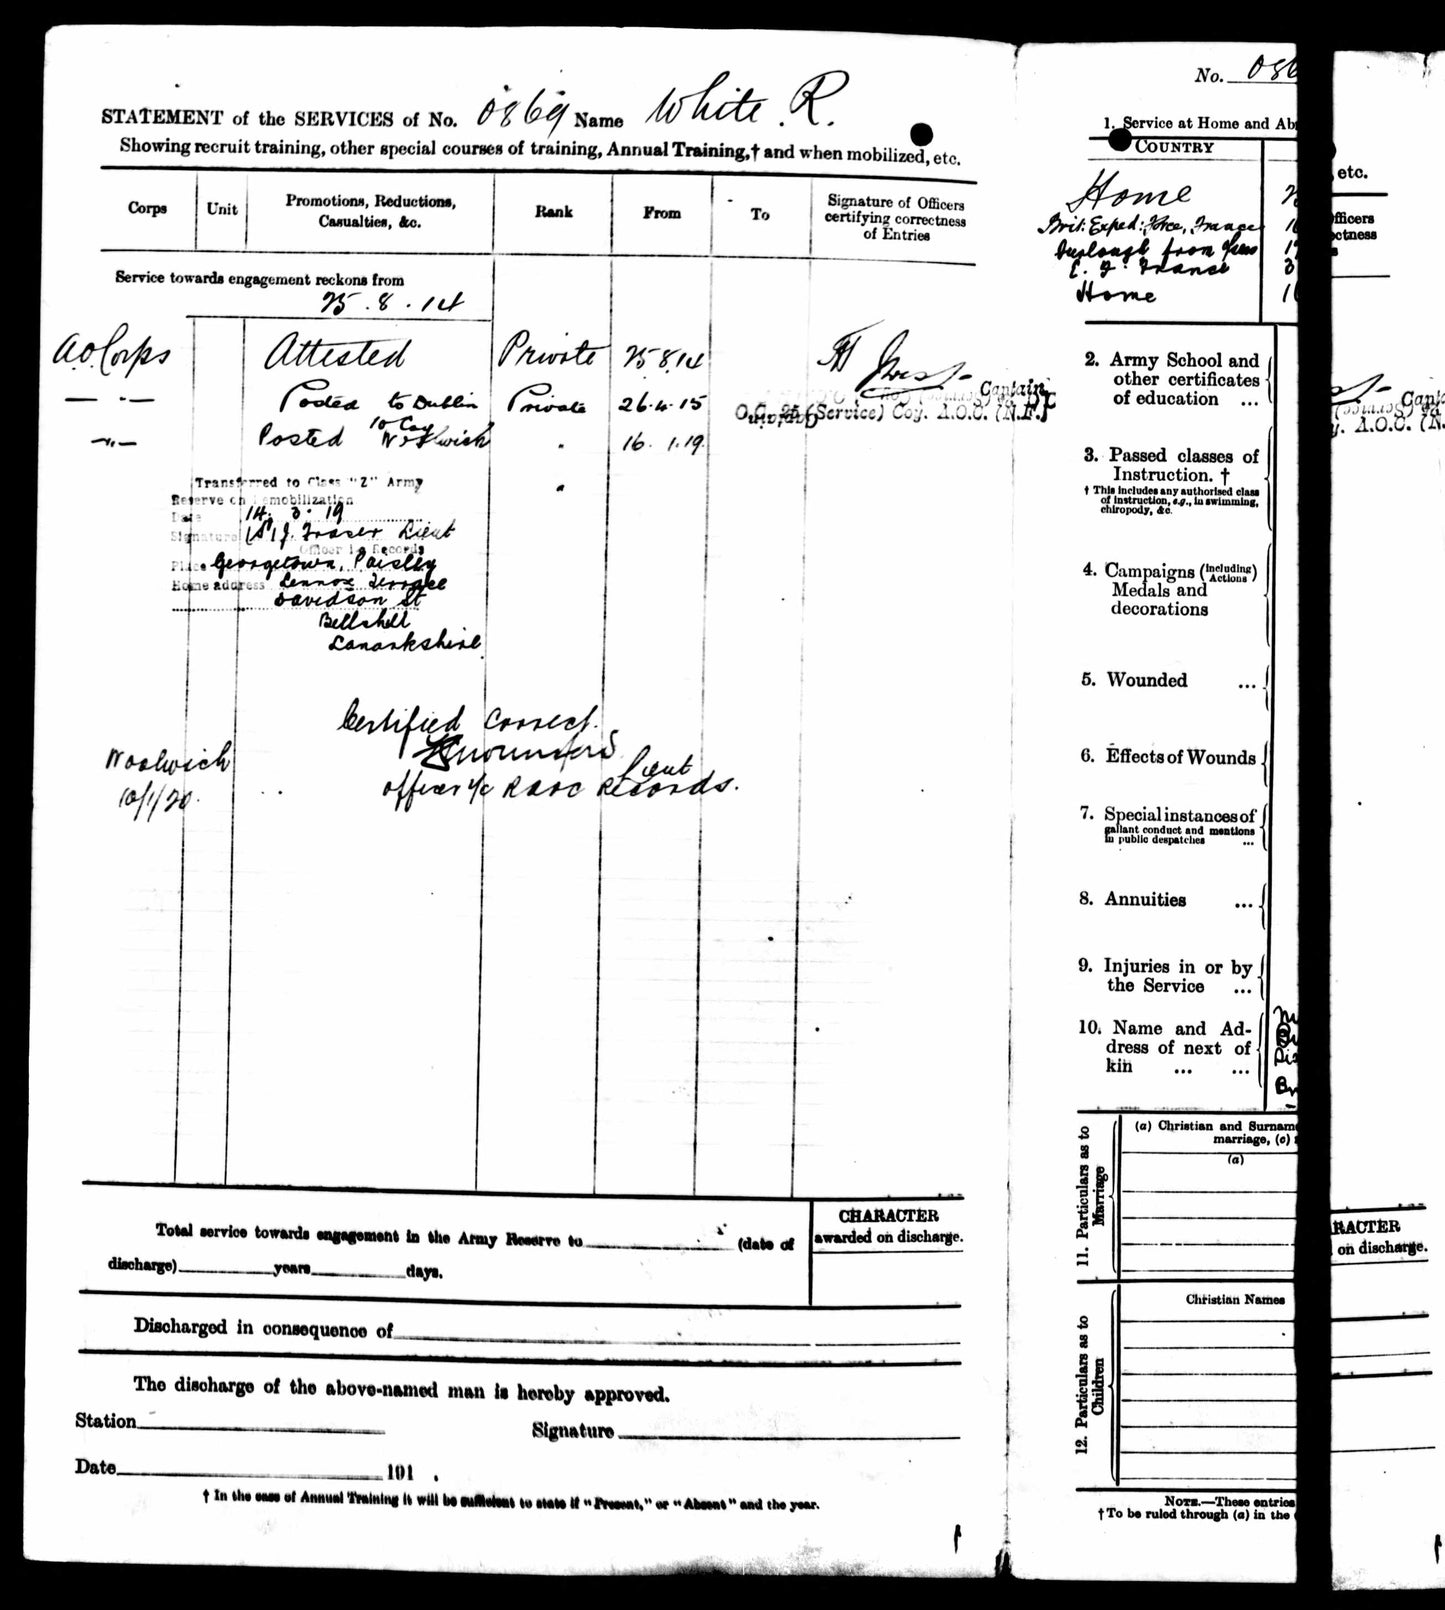 STATEMENT of the SERVICES of No. 0869 Name White. R.
Showing recruit training, other special courses of training, Annual Training,† and when mobilized, etc.
Corps Unit Promotions, Reductions, Casualties, &c. Rank From To Signature of Officers certifying correctness of Entries
Service towards engagement reckons from
25.8.14
A.O. Corps Attested Private 25.8.14
— " — Posted to Dublin Private 26.4.15
Captain
O.C. 25 (Service) Coy. A.O.C. (N.F.)
10 Coy
— " — Posted Woolwich " 16. 1.19.
Transferred to Class "Z" Army "
Reserve on Demobilization
Date 14. 3. 19
Signature (S) J. Fraser Lieut
Officer i/c Records
Place Georgetown, Paisley
Home address Lennox Terrace
Davidson St
Bellshill
Lanarkshire
Certified Correct.
Woolwich Lieut
10/1/20. Officer i/c RAOC Records.
Total service towards engagement in the Army Reserve to (date of
discharge) years days.
CHARACTER
awarded on discharge.
Discharged in consequence of
The discharge of the above-named man is hereby approved.
Station Signature
Date 191 .
† In the case of Annual Training it will be sufficient to state if "Present," or "Absent" and the year.
No. 086
1. Service at Home and Ab
COUNTRY
Home
Brit: Exped: Force, France
Furlough from
E. F. France
Home
2. Army School and
other certificates
of education ...
3. Passed classes of
Instruction. †
† This includes any authorised class
of instruction, e.g., in swimming,
chiropody, &c.
4. Campaigns (including Actions)
Medals and
decorations
5. Wounded ...
6. Effects of Wounds
7. Special instances of
gallant conduct and mentions
in public despatches ...
8. Annuities ...
9. Injuries in or by
the Service ...
10. Name and Ad-
dress of next of
kin ... ...
11. Particulars as to Marriage
(a) Christian and Surnam
marriage, (c)
(a)
12. Particulars as to Children
Christian Names
NOTE.—These entries
† To be ruled through (a) in the
etc.
fficers
ctness
s
Capt
y. A.O.C. (N.
RACTER
on discharge.